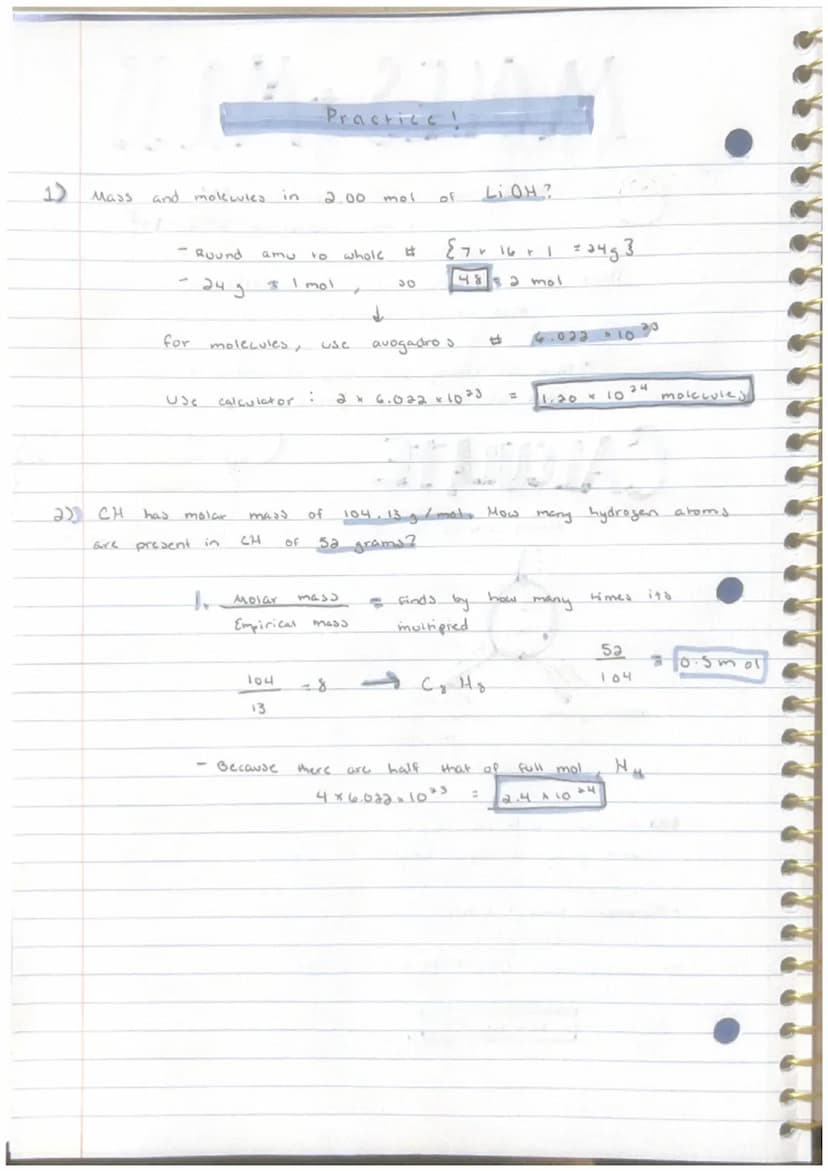 Practice!
1) Mass and molecules in 2.00 mol of LiOH?
- Round amu to whole # {7 + 16 + 1 = 24g}
- 24 g = 1 mol, so 48 = 2 mol
↓
for molecules, use avogadros # 6.022 × 10²³
Use calculator: 2 × 6.022 × 10²³ = 1.20 × 10²⁴ molecules
2) CH has molar mass of 104.13 g/mol. How many hydrogen atoms
are present in CH of 52 grams?
1. Molar mass = finds by how many times its
Empirical mass multipred
52
104 = 0.5 mol
104
13 = 8 → C₈H₈
- Because there are half that of full mol, H₄
4 × 6.022 × 10²³ = 2.4 × 10²⁴